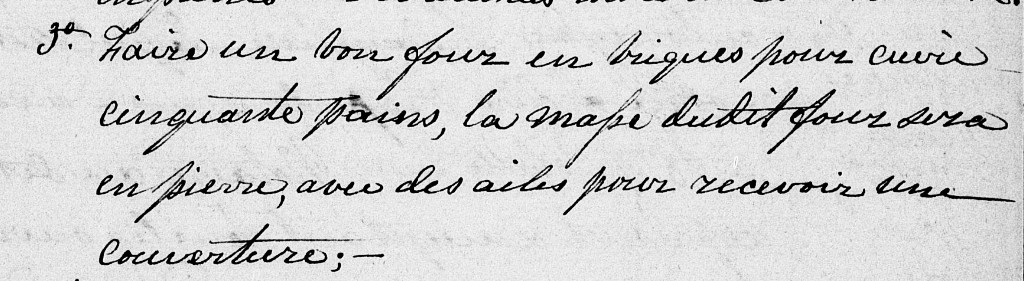 3º. Faire un bon four en briques pour cuire
cinquante pains, la masse dudit four sera
en pierre, avec des ailes pour recevoir une
couverture; —